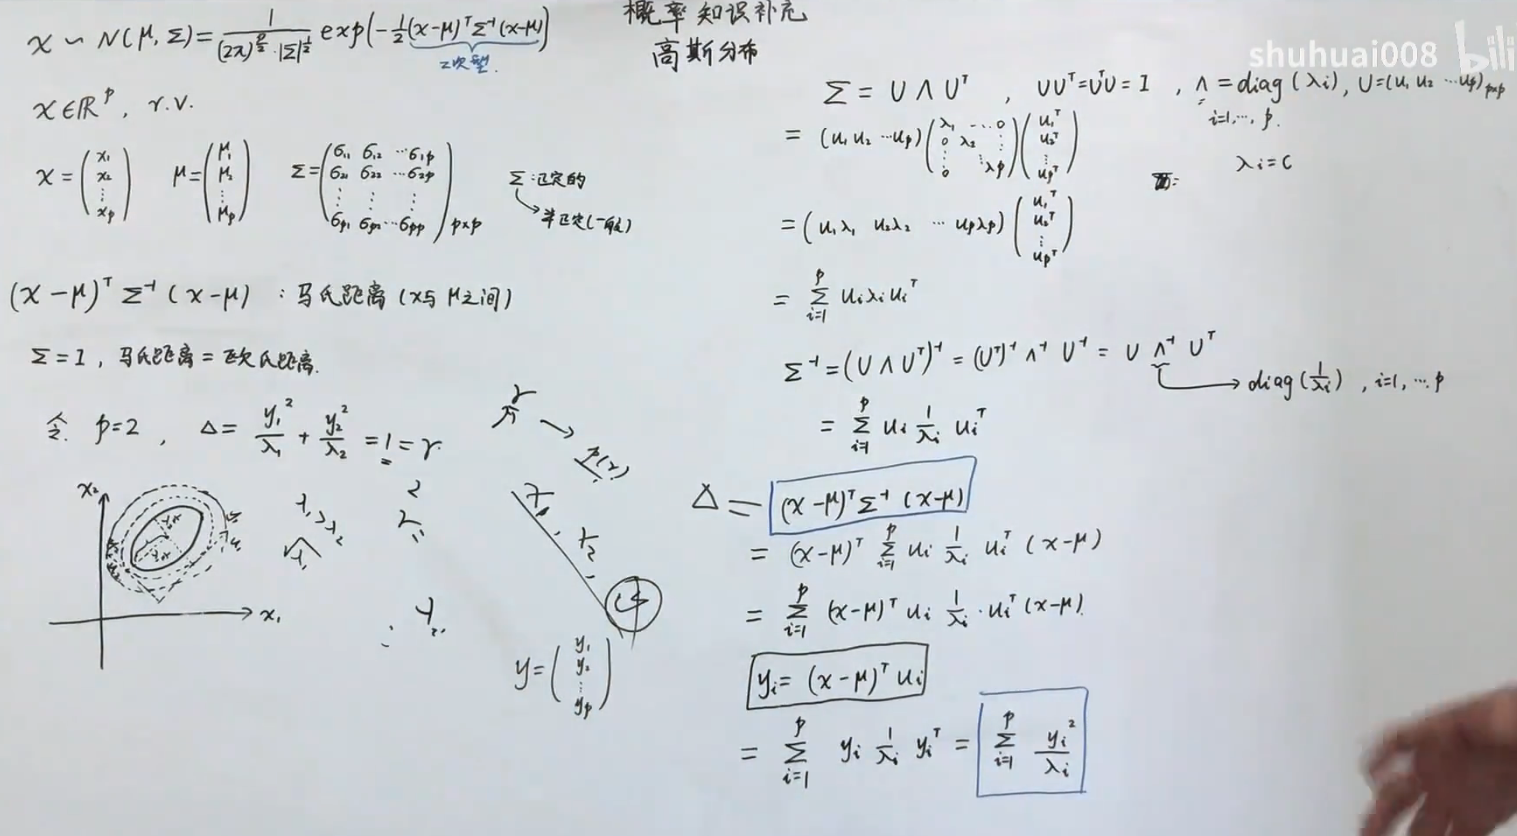 概率知识补充
高斯分布
shuhuai008 bili
x ~ N(μ, Σ) = 1/((2π)^{p/2}·|Σ|^{1/2}) exp(-1/2 (x-μ)^T Σ^{-1} (x-μ))
二次型.
x ∈ ℝ^p, r.v.
x = (x₁ x₂ ⋮ x_p) μ = (μ₁ μ₂ ⋮ μ_p) Σ = (σ₁₁ σ₁₂ ⋯ σ₁p σ₂₁ σ₂₂ ⋯ σ₂p ⋮ ⋮ ⋮ σp₁ σp₂ ⋯ σpp)_{p×p}
Σ:正定的
半正定(一般)
(x-μ)^T Σ^{-1} (x-μ) : 马氏距离 (x与μ之间)
Σ = I, 马氏距离 = 欧氏距离.
令 p=2, Δ = y₁²/λ₁ + y₂²/λ₂ = 1 = r
x₂
x₁
λ₁ > λ₂
r → p(r)
y = (y₁ y₂ ⋮ y_p)
Σ = U Λ U^T, UU^T = U^TU = I, Λ = diag(λi), U = (u₁ u₂ ⋯ u_p)_{p×p}
i=1,⋯, p.
= (u₁ u₂ ⋯ u_p) (λ₁ ⋯ 0 0 λ₂ ⋮ ⋮ λp 0) (u₁^T u₂^T ⋮ u_p^T)
λi = c
= (u₁λ₁ u₂λ₂ ⋯ u_pλ_p) (u₁^T u₂^T ⋮ u_p^T)
= Σ_{i=1}^p ui λi ui^T
Σ^{-1} = (U Λ U^T)^{-1} = (U^T)^{-1} Λ^{-1} U^{-1} = U Λ^{-1} U^T
→ diag(1/λi), i=1,⋯p
= Σ_{i=1}^p ui 1/λi ui^T
Δ = (x-μ)^T Σ^{-1} (x-μ)
= (x-μ)^T Σ_{i=1}^p ui 1/λi ui^T (x-μ)
= Σ_{i=1}^p (x-μ)^T ui 1/λi · ui^T (x-μ).
yi = (x-μ)^T ui
= Σ_{i=1}^p yi 1/λi yi^T = Σ_{i=1}^p yi²/λi